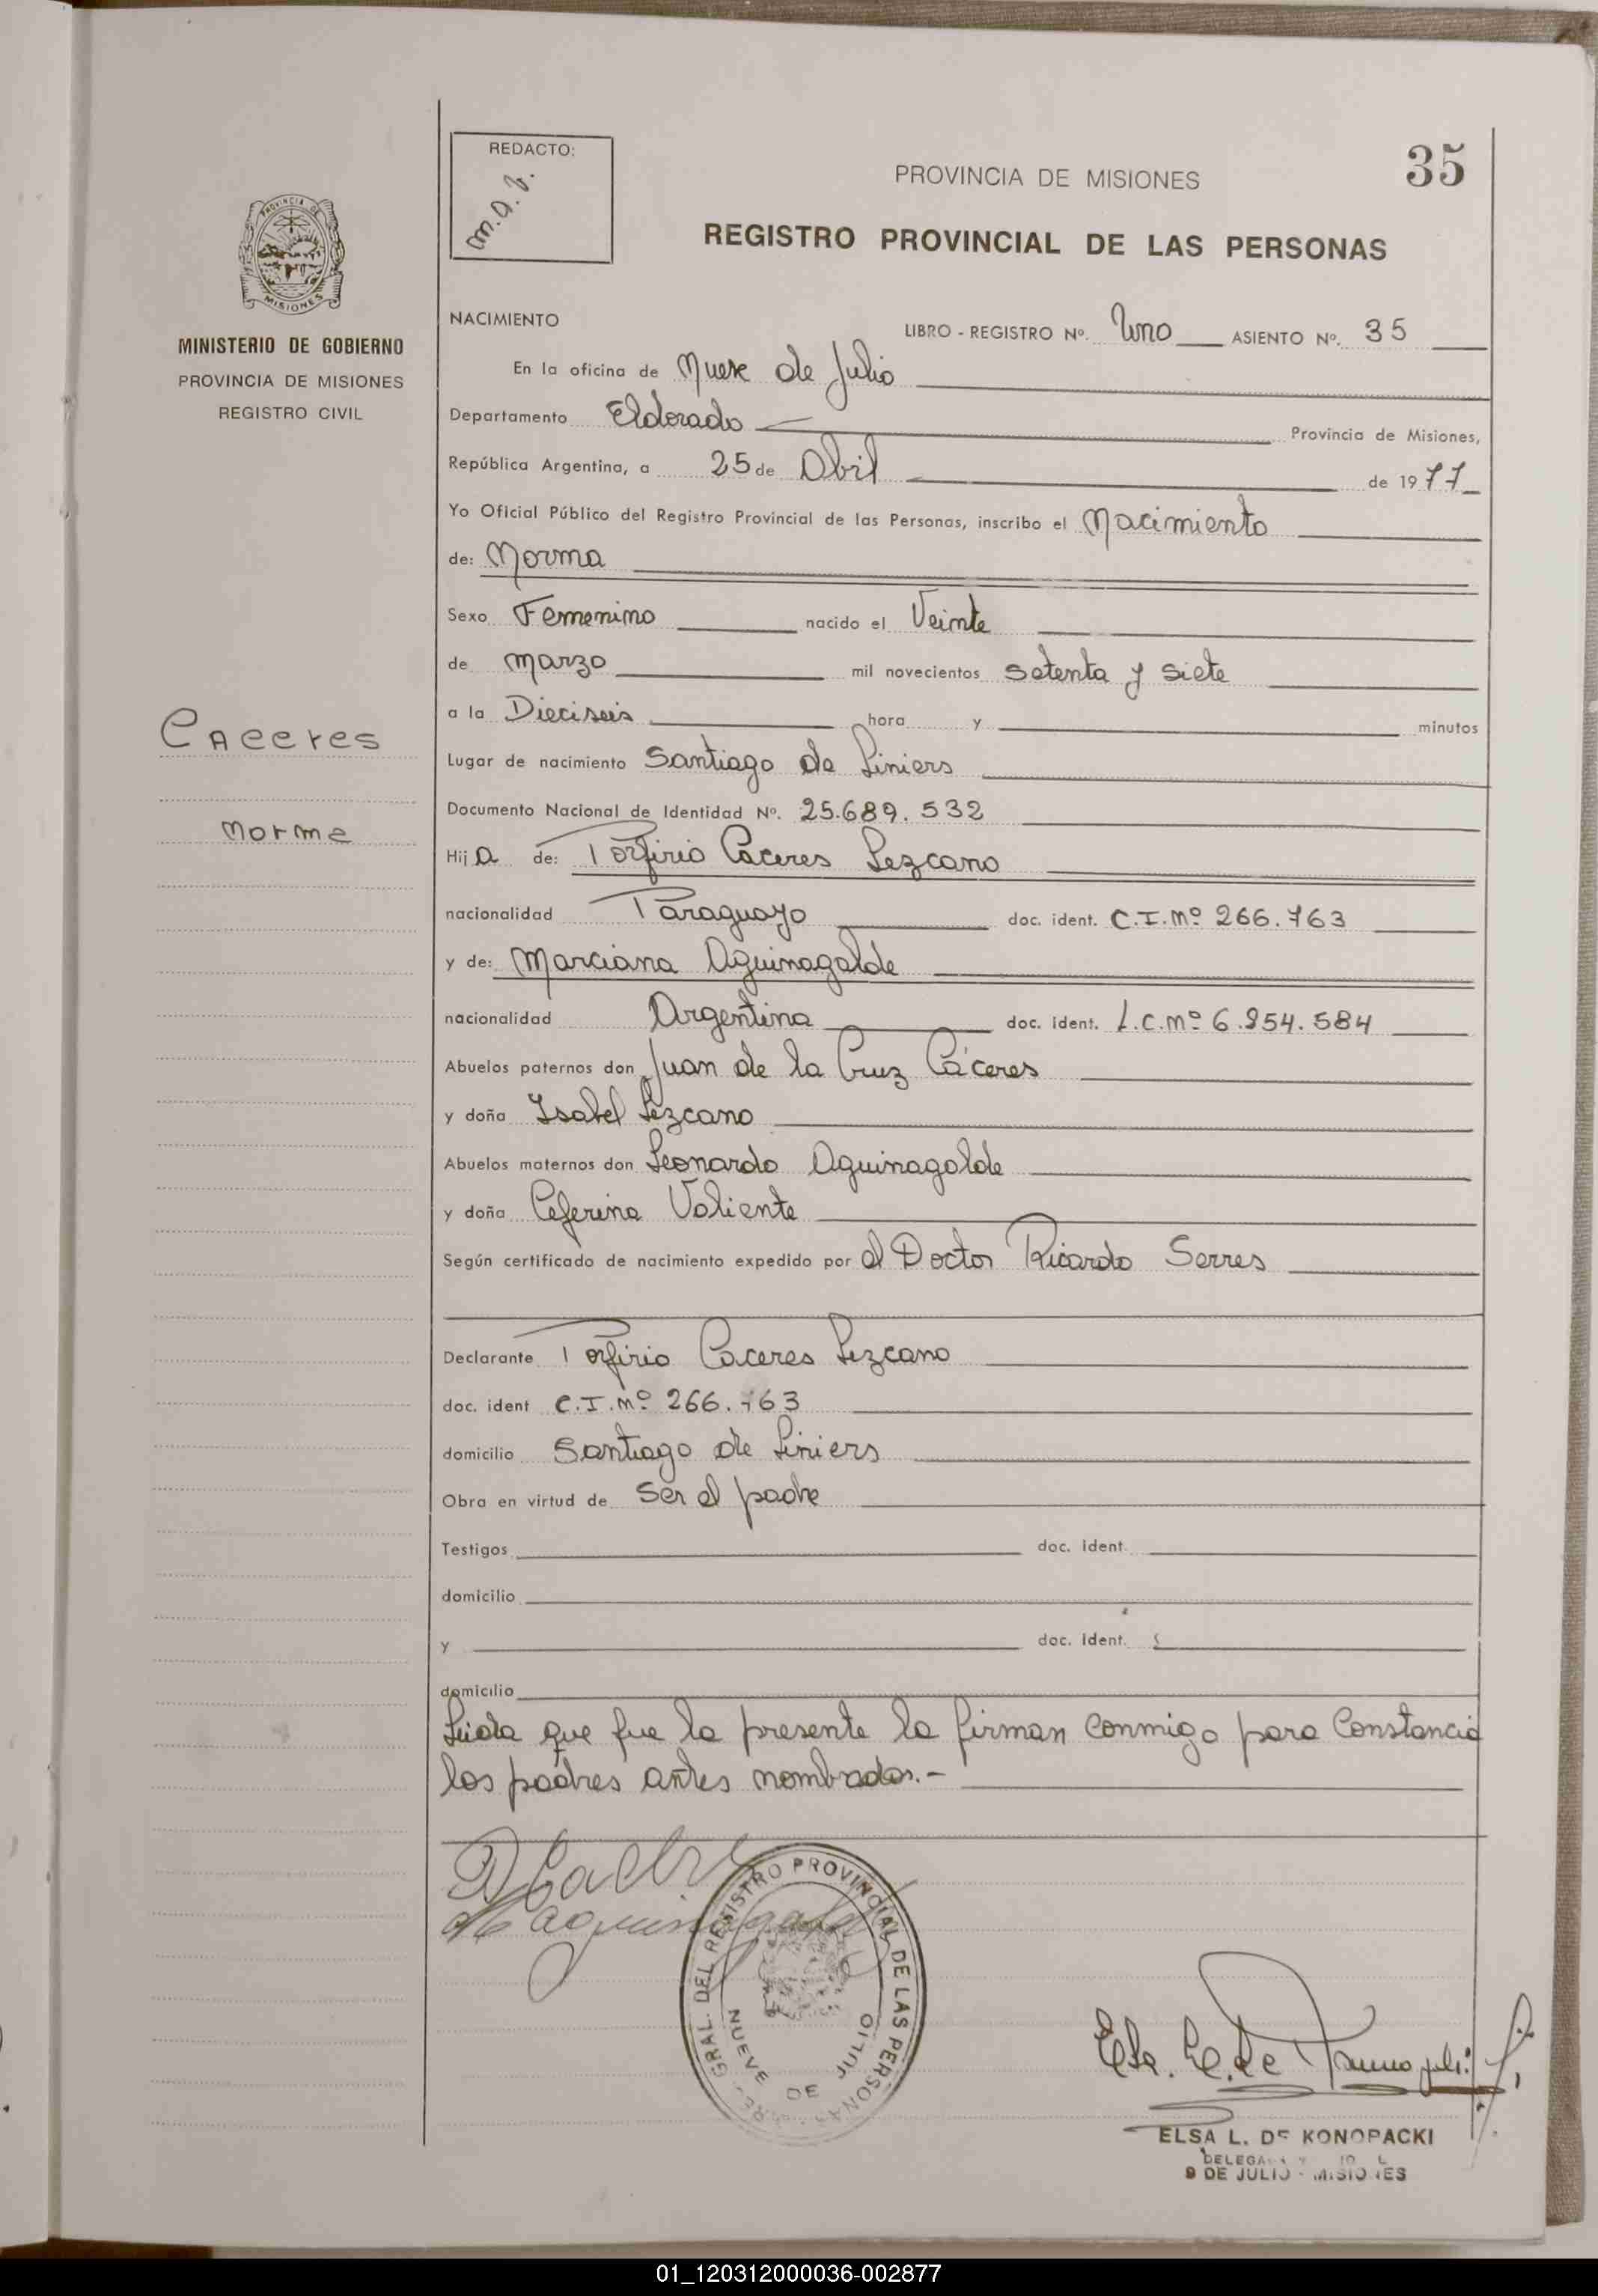 35
REDACTO:
m.a.b.
PROVINCIA DE MISIONES
REGISTRO PROVINCIAL DE LAS PERSONAS
PROVINCIA DE
MISIONES
MINISTERIO DE GOBIERNO
PROVINCIA DE MISIONES
REGISTRO CIVIL
Caceres
Norma
NACIMIENTO
LIBRO - REGISTRO Nº. Uno ASIENTO Nº. 35
En la oficina de Nueve de Julio
Departamento Eldorado Provincia de Misiones,
República Argentina, a 25 de Abril de 1977
Yo Oficial Público del Registro Provincial de las Personas, inscribo el Nacimiento
de: Norma
Sexo Femenino nacido el Veinte
de marzo mil novecientos setenta y siete
a la Dieciseis hora y minutos
Lugar de nacimiento Santiago de Liniers
Documento Nacional de Identidad Nº. 25.689.532
Hija de: Porfirio Caceres Lezcano
nacionalidad Paraguayo doc. ident. C.I.Nº 266.763
y de: Marciana Aguinagalde
nacionalidad Argentina doc. ident. L.C.Nº 6.854.584
Abuelos paternos don Juan de la Cruz Cáceres
y doña Ysabel Lezcano
Abuelos maternos don Leonardo Aguinagalde
y doña Ceferina Valiente
Según certificado de nacimiento expedido por el Doctor Ricardo Serres
Declarante Porfirio Caceres Lezcano
doc. ident C.I.Nº 266.763
domicilio Santiago de Liniers
Obra en virtud de ser el padre
Testigos doc. ident.
domicilio
y doc. ident.
domicilio
Leida que fue la presente la firman conmigo para Constancia
los padres antes nombrados.-
GRAL. DEL REGISTRO PROVINCIAL DE LAS PERSONAS
NUEVE DE JULIO
ELSA L. DE KONOPACKI
9 DE JULIO - MISIONES
01_120312000036-002877